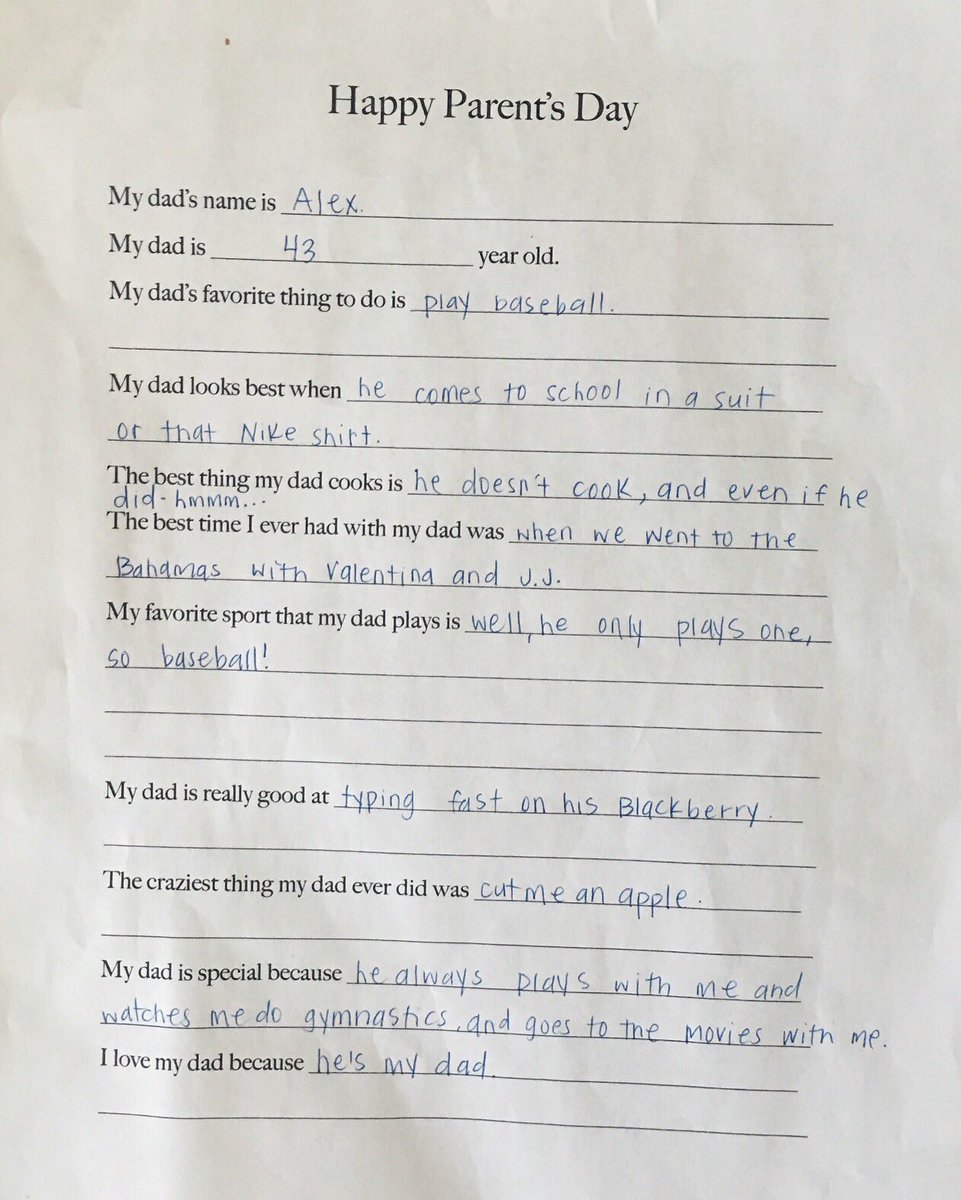 Happy Parent's Day
My dad's name is Alex.
My dad is 43 year old.
My dad's favorite thing to do is play baseball.
My dad looks best when he comes to school in a suit
or that Nike shirt.
The best thing my dad cooks is he doesn't cook, and even if he
did - hmmm...
The best time I ever had with my dad was when we went to the
Bahamas with Valentina and J.J.
My favorite sport that my dad plays is well, he only plays one,
so baseball!
My dad is really good at typing fast on his Blackberry.
The craziest thing my dad ever did was cut me an apple.
My dad is special because he always plays with me and
watches me do gymnastics, and goes to the movies with me.
I love my dad because he's my dad.